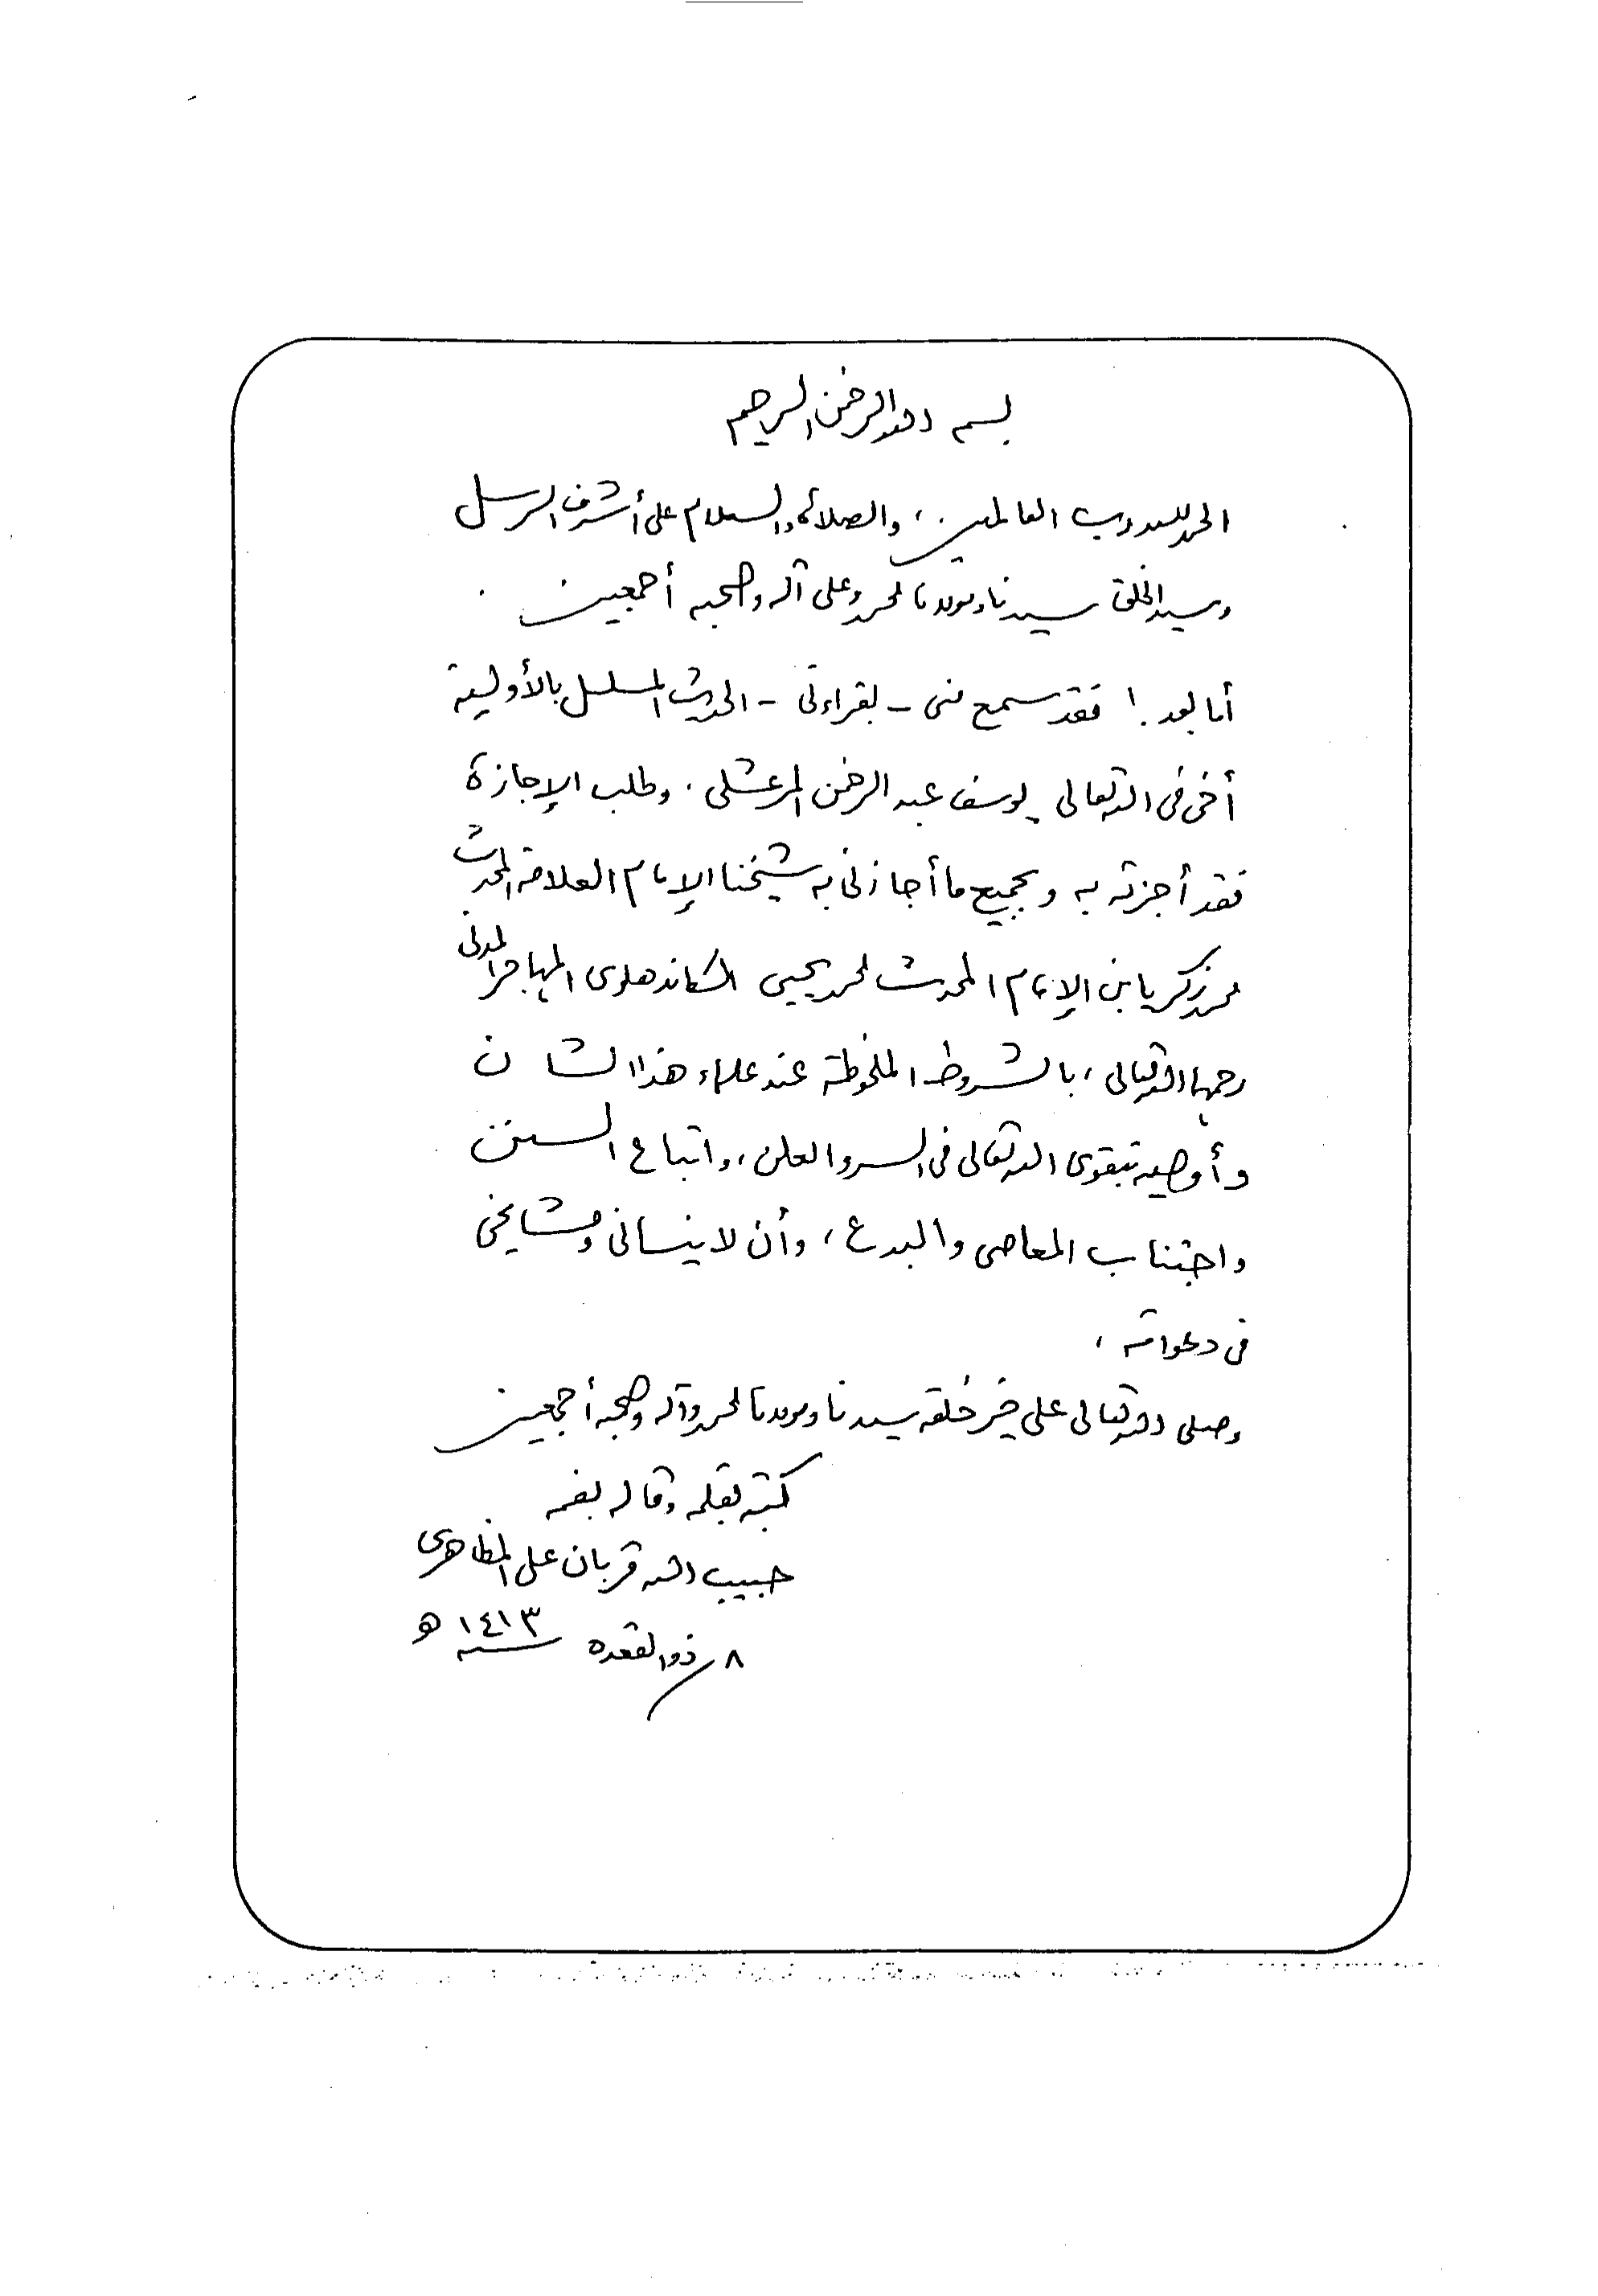 بسم الله الرحمن الرحيم
الحمد لله رب العالمين ، والصلاة والسلام على أشرف الرسل
وسيد الخلق سيدنا ومولانا محمد وعلى آله وصحبه أجمعين .
أما بعد ! فقد سمع منى - بقراءتى - الحديث المسلسل بالأولية
أخى فى الله تعالى يوسف عبد الرحمن المرعشلى . وطلب الإجازة
فقد أجزته به وبجميع ما أجازنى به شيخنا الإمام العلامة المحدث
محمد زكريا بن الإمام المحدث محمد يحيى الكاندهلوى المهاجر المدنى
رحمهما الله تعالى ، بالشروط الملحوظة عند علماء هذا الشان
وأوصيه بتقوى الله تعالى فى السر والعلن ، واتباع السنن
واجتناب المعاصى والبدع ، وأن لا ينسانى ومشايخى
فى دعواته ،
وصلى الله تعالى على خير خلقه سيدنا ومولانا محمد وآله وصحبه أجمعين
كتبه بقلمه وقاله بفمه
حبيب الله قربان على المظاهرى
٨ / ذو القعده سنه ١٤١٣ هـ